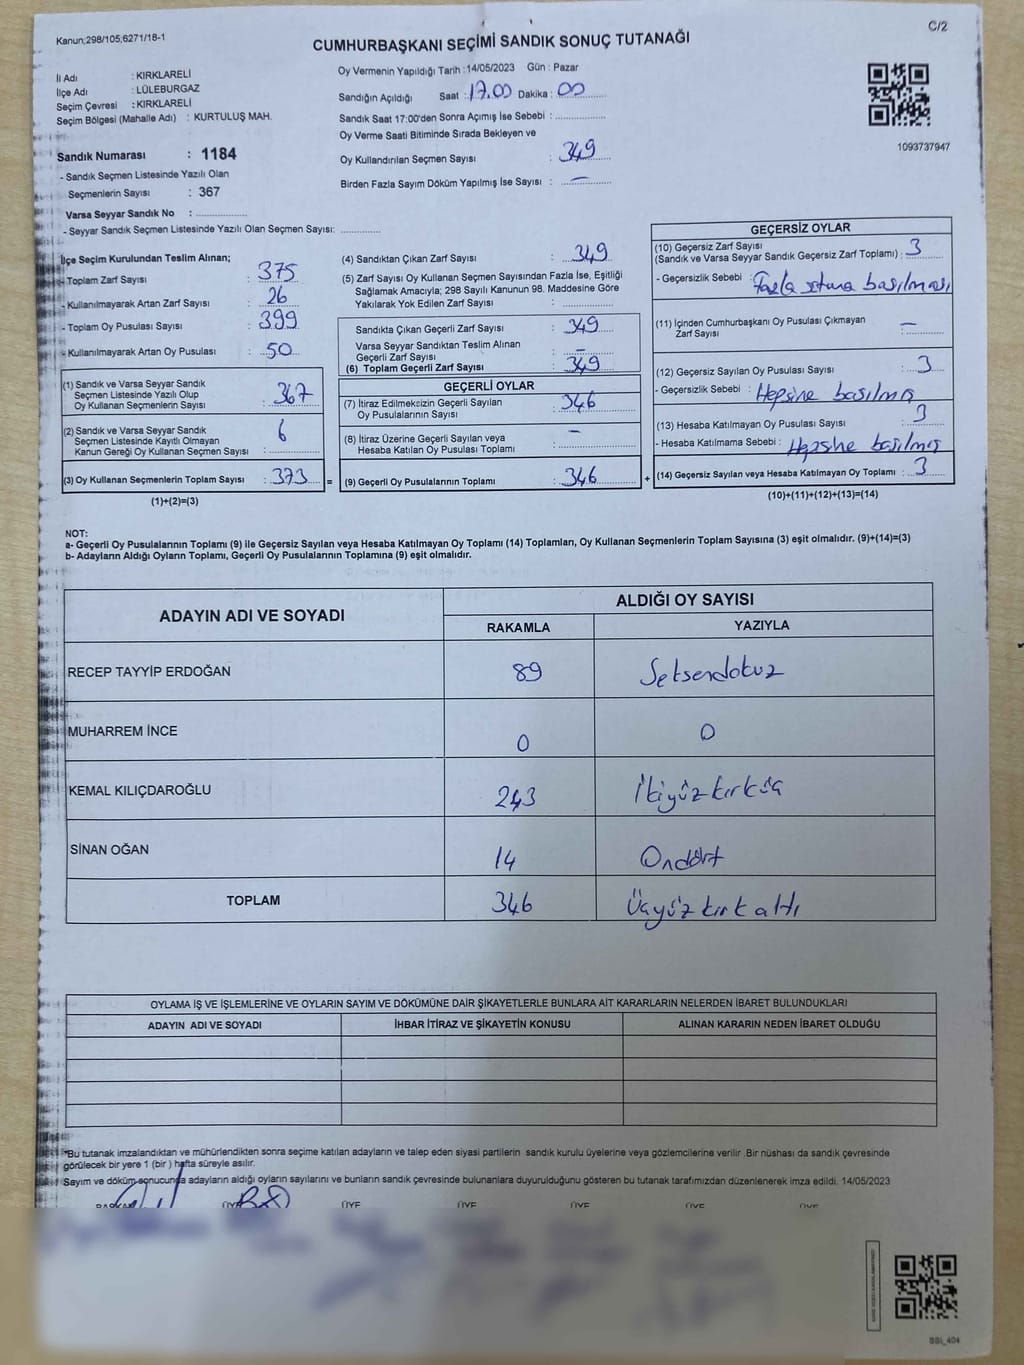 Kanun;298/105,6271/18-1
C/2
CUMHURBAŞKANI SEÇİMİ SANDIK SONUÇ TUTANAĞI
İl Adı : KIRKLARELİ
İlçe Adı : LÜLEBURGAZ
Seçim Çevresi : KIRKLARELİ
Seçim Bölgesi (Mahalle Adı) : KURTULUŞ MAH.
Sandık Numarası : 1184
- Sandık Seçmen Listesinde Yazılı Olan
Seçmenlerin Sayısı : 367
Varsa Seyyar Sandık No :
- Seyyar Sandık Seçmen Listesinde Yazılı Olan Seçmen Sayısı:
Oy Vermenin Yapıldığı Tarih :14/05/2023 Gün : Pazar
Sandığın Açıldığı Saat :17.00 Dakika : 00
Sandık Saat 17:00'den Sonra Açımış İse Sebebi :
Oy Verme Saati Bitiminde Sırada Bekleyen ve
Oy Kullandırılan Seçmen Sayısı : 349
Birden Fazla Sayım Döküm Yapılmış İse Sayısı : –
1093737947
İlçe Seçim Kurulundan Teslim Alınan;
- Toplam Zarf Sayısı : 375
- Kullanılmayarak Artan Zarf Sayısı : 26
- Toplam Oy Pusulası Sayısı : 399
- Kullanılmayarak Artan Oy Pusulası : 50
(1) Sandık ve Varsa Seyyar Sandık
Seçmen Listesinde Yazılı Olup
Oy Kullanan Seçmenlerin Sayısı : 367
(2) Sandık ve Varsa Seyyar Sandık
Seçmen Listesinde Kayıtlı Olmayan
Kanun Gereği Oy Kullanan Seçmen Sayısı : 6
(3) Oy Kullanan Seçmenlerin Toplam Sayısı : 373 =
(1)+(2)=(3)
(4) Sandıktan Çıkan Zarf Sayısı : 349
(5) Zarf Sayısı Oy Kullanan Seçmen Sayısından Fazla İse, Eşitliği
Sağlamak Amacıyla; 298 Sayılı Kanunun 98. Maddesine Göre
Yakılarak Yok Edilen Zarf Sayısı :
Sandıkta Çıkan Geçerli Zarf Sayısı : 349
Varsa Seyyar Sandıktan Teslim Alınan
Geçerli Zarf Sayısı : –
(6) Toplam Geçerli Zarf Sayısı : 349
GEÇERLİ OYLAR
(7) İtiraz Edilmeksizin Geçerli Sayılan
Oy Pusulalarının Sayısı : 346
(8) İtiraz Üzerine Geçerli Sayılan veya
Hesaba Katılan Oy Pusulası Toplamı : –
(9) Geçerli Oy Pusulalarının Toplamı : 346 +
GEÇERSİZ OYLAR
(10) Geçersiz Zarf Sayısı
(Sandık ve Varsa Seyyar Sandık Geçersiz Zarf Toplamı) : 3
- Geçersizlik Sebebi : Fazla sütuna basılması
(11) İçinden Cumhurbaşkanı Oy Pusulası Çıkmayan
Zarf Sayısı : –
(12) Geçersiz Sayılan Oy Pusulası Sayısı : 3
- Geçersizlik Sebebi : Hepsine basılmış
(13) Hesaba Katılmayan Oy Pusulası Sayısı : 3
- Hesaba Katılmama Sebebi : Hepsine basılmış
(14) Geçersiz Sayılan veya Hesaba Katılmayan Oy Toplamı : 3
(10)+(11)+(12)+(13)=(14)
NOT:
a- Geçerli Oy Pusulalarının Toplamı (9) ile Geçersiz Sayılan veya Hesaba Katılmayan Oy Toplamı (14) Toplamları, Oy Kullanan Seçmenlerin Toplam Sayısına (3) eşit olmalıdır. (9)+(14)=(3)
b- Adayların Aldığı Oyların Toplamı, Geçerli Oy Pusulalarının Toplamına (9) eşit olmalıdır.
ADAYIN ADI VE SOYADI ALDIĞI OY SAYISI
RAKAMLA YAZIYLA
RECEP TAYYİP ERDOĞAN 89 Seksendokuz
MUHARREM İNCE 0 0
KEMAL KILIÇDAROĞLU 243 İkiyüzkırküç
SİNAN OĞAN 14 Ondört
TOPLAM 346 Üçyüzkırkaltı
OYLAMA İŞ VE İŞLEMLERİNE VE OYLARIN SAYIM VE DÖKÜMÜNE DAİR ŞİKAYETLERLE BUNLARA AİT KARARLARIN NELERDEN İBARET BULUNDUKLARI
ADAYIN ADI VE SOYADI İHBAR İTİRAZ VE ŞİKAYETİN KONUSU ALINAN KARARIN NEDEN İBARET OLDUĞU
*Bu tutanak imzalandıktan ve mühürlendikten sonra seçime katılan adayların ve talep eden siyasi partilerin sandık kurulu üyelerine veya gözlemcilerine verilir .Bir nüshası da sandık çevresinde
görülecek bir yere 1 (bir ) hafta süreyle asılır.
Sayım ve döküm sonucunda adayların aldığı oyların sayılarını ve bunların sandık çevresinde bulunanlara duyurulduğunu gösteren bu tutanak tarafımızdan düzenlenerek imza edildi. 14/05/2023
BAŞKAN ÜYE ÜYE ÜYE ÜYE ÜYE ÜYE
SSI_404